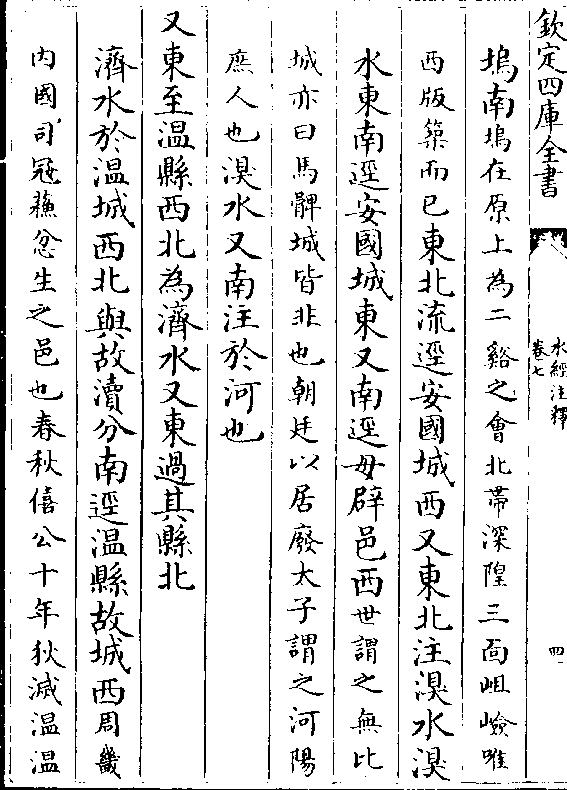 欽定四庫全書
水經注釋
卷七
四
塢南塢在原上為二谿之會北帶深隍三面岨嶮唯
西版築而已東北流逕安國城西又東北注溴水溴
水東南逕安國城東又南逕毋辟邑西世謂之無比
城亦曰馬髀城皆非也朝廷以居廢太子謂之河陽
庶人也溴水又南注於河也
又東至溫縣西北為濟水又東過其縣北
濟水於溫城西北與故瀆分南逕溫縣故城西周畿
內國司寇蘇忿生之邑也春秋僖公十年狄滅溫溫